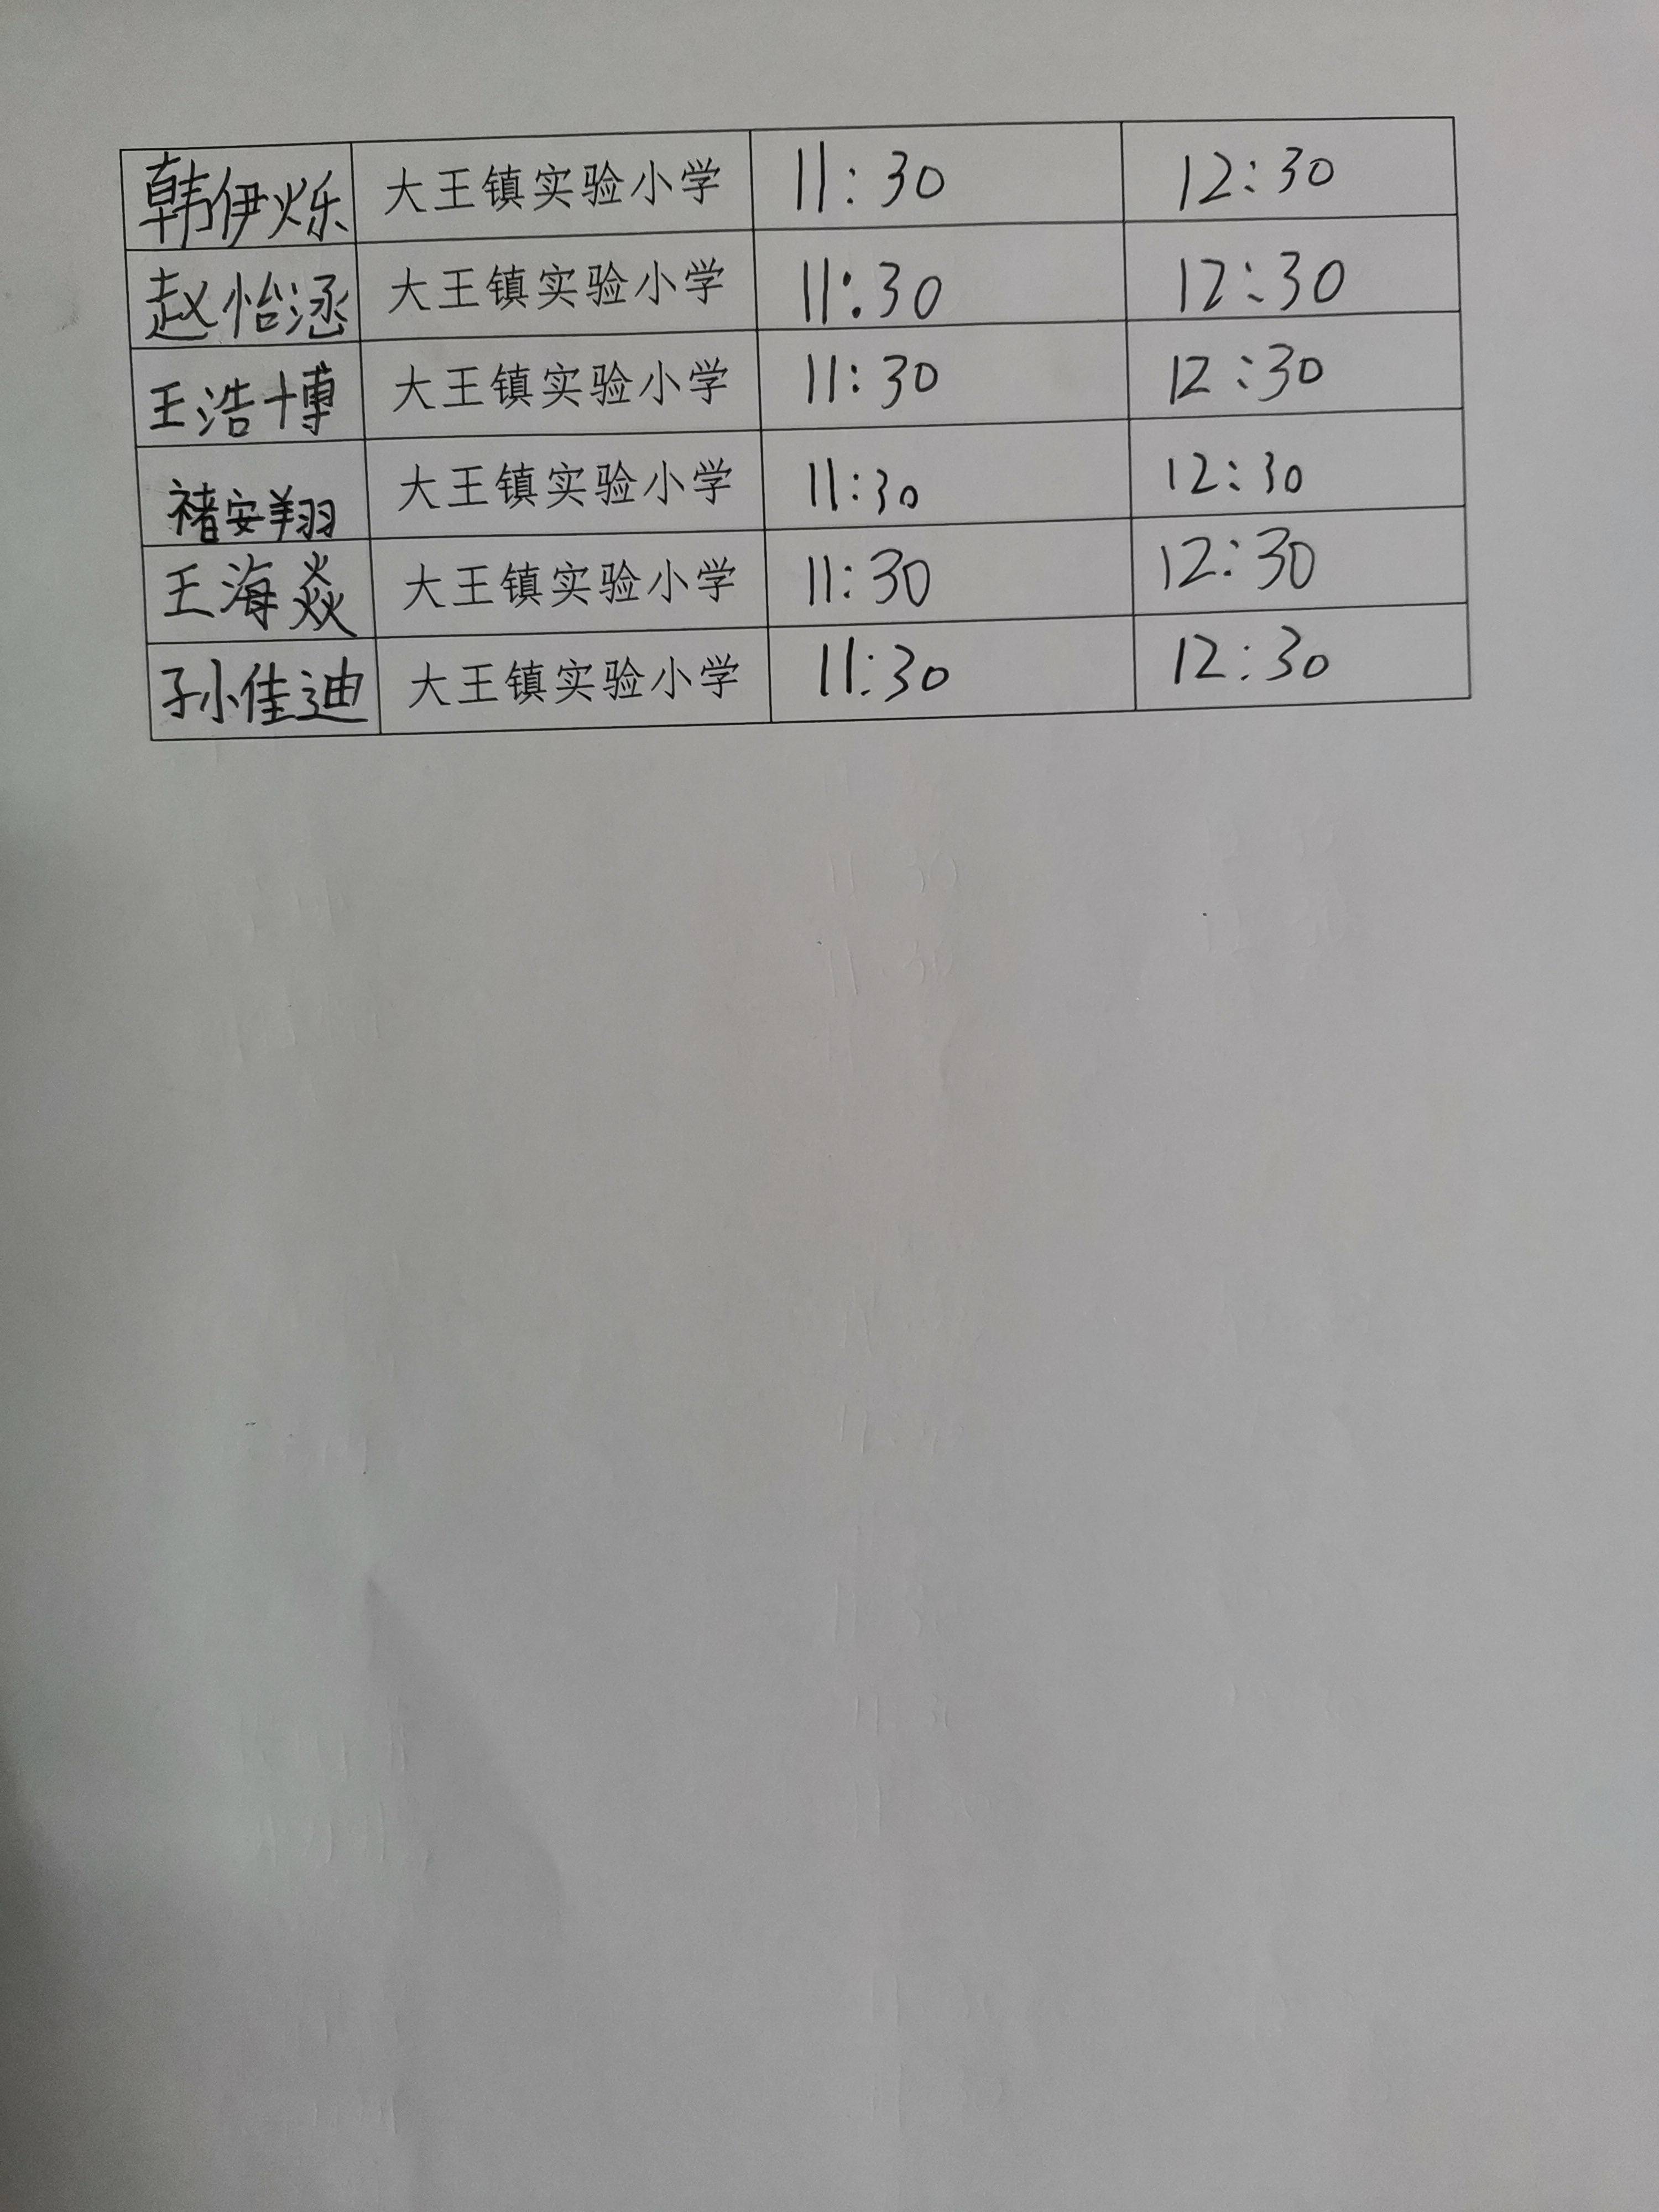 韩伊烁 大王镇实验小学 11:30 12:30
赵怡涵 大王镇实验小学 11:30 12:30
王浩博 大王镇实验小学 11:30 12:30
褚安翔 大王镇实验小学 11:30 12:30
王海焱 大王镇实验小学 11:30 12:30
孙佳迪 大王镇实验小学 11:30 12:30